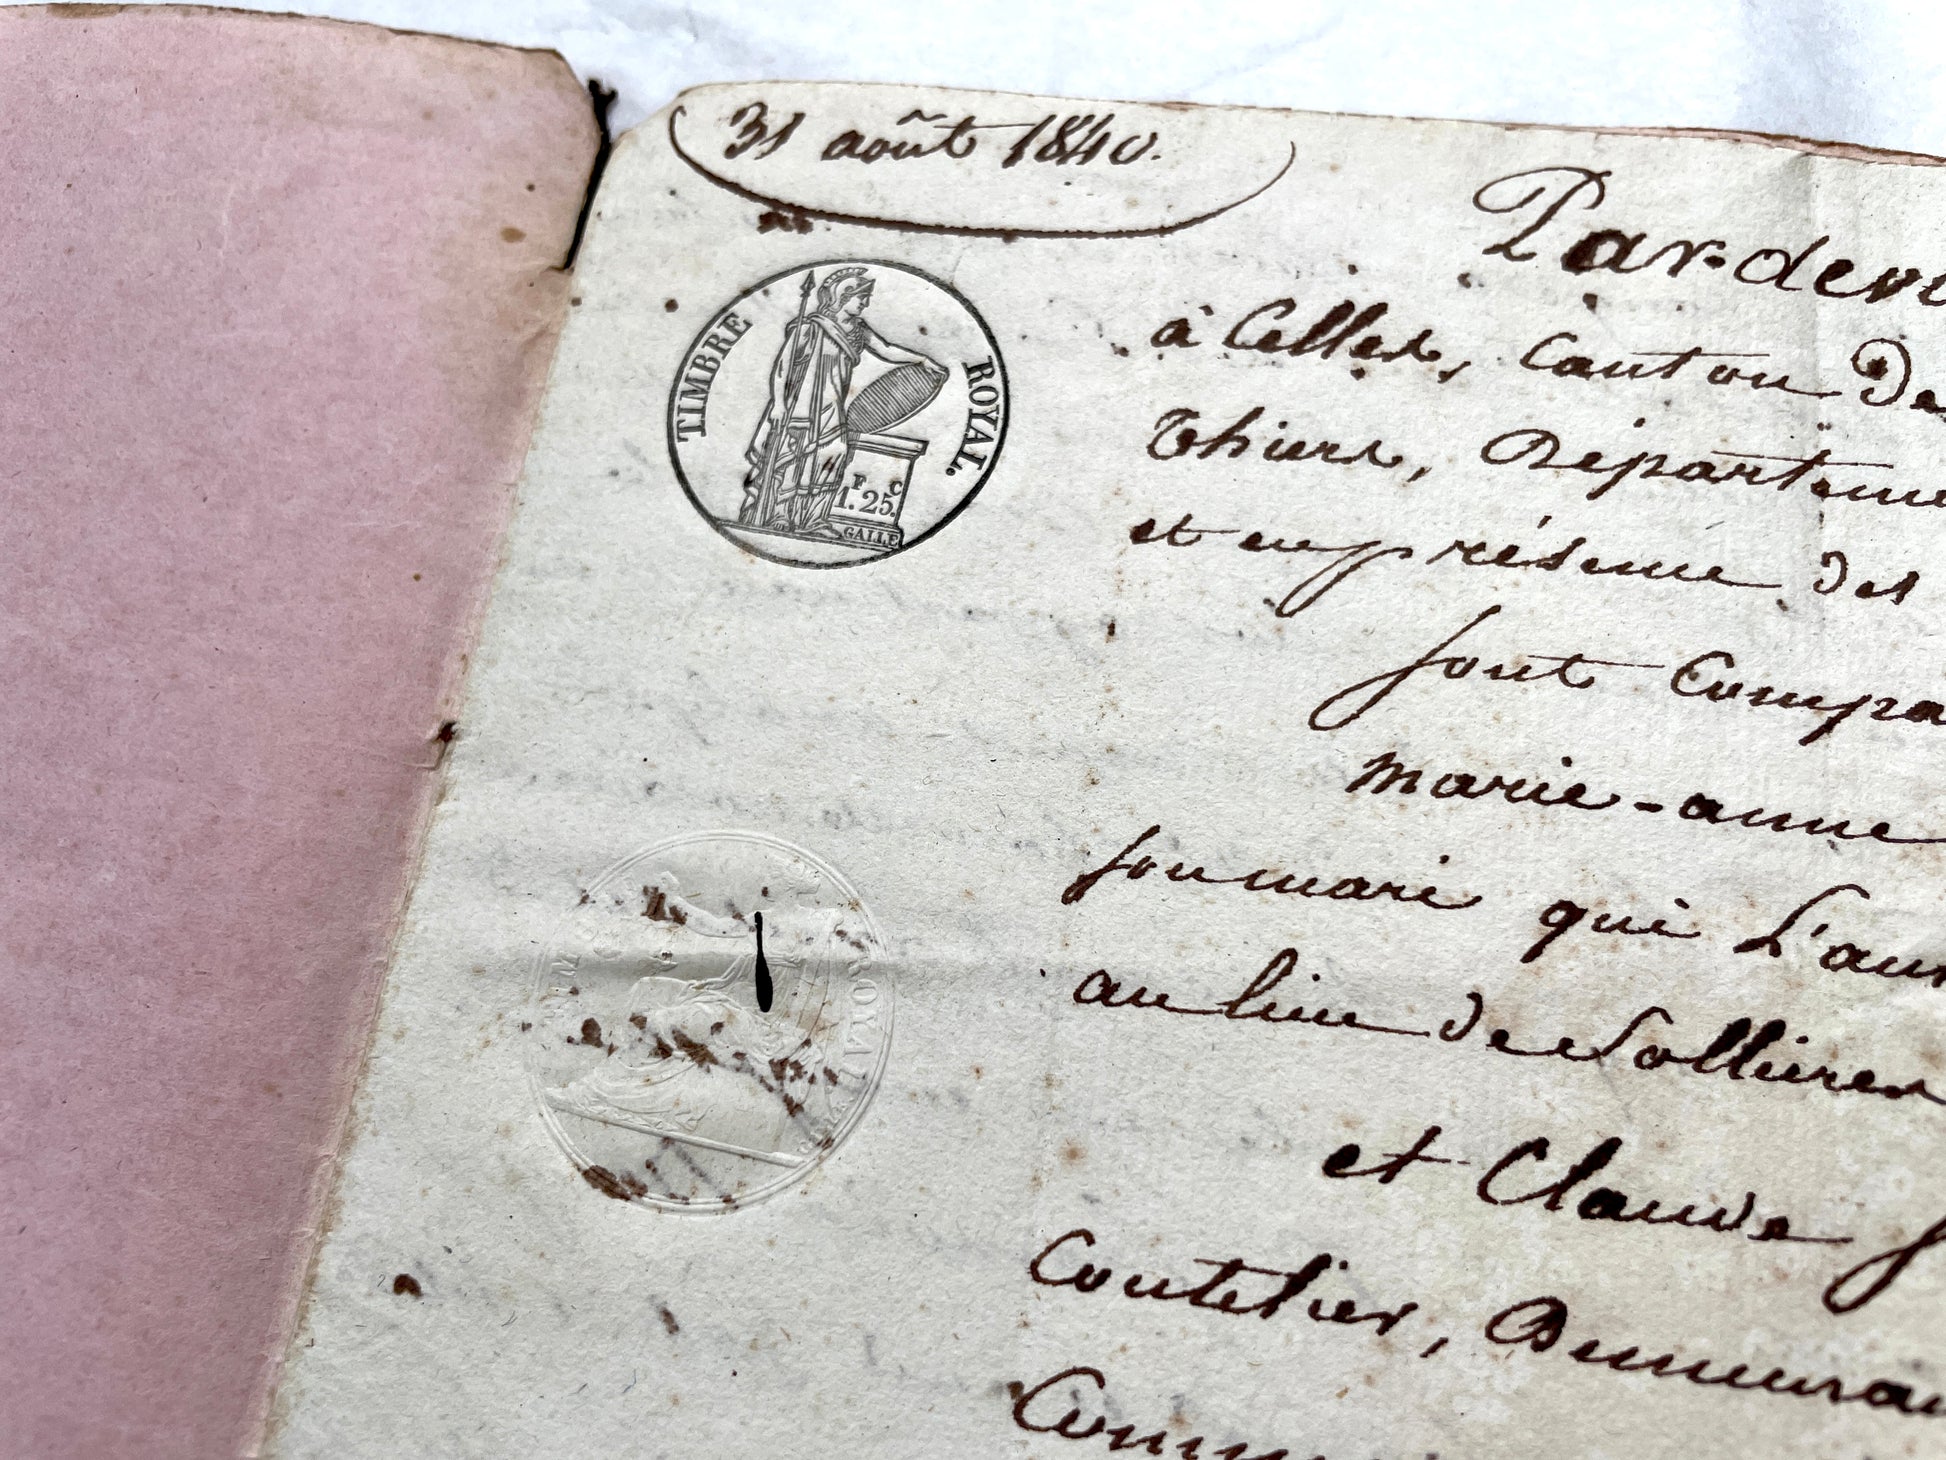 31 août 1840.
TIMBRE ROYAL.
F C
1.25.
GALLE
Par-dev
à Celles, Canton de
Thiers, Départeme
et en présence des
Sont Compa
marie-anne
son mari qui L'au
au lieu de Sollieres
et Claude
Coutelier, Demeura
Comm
ROYAL